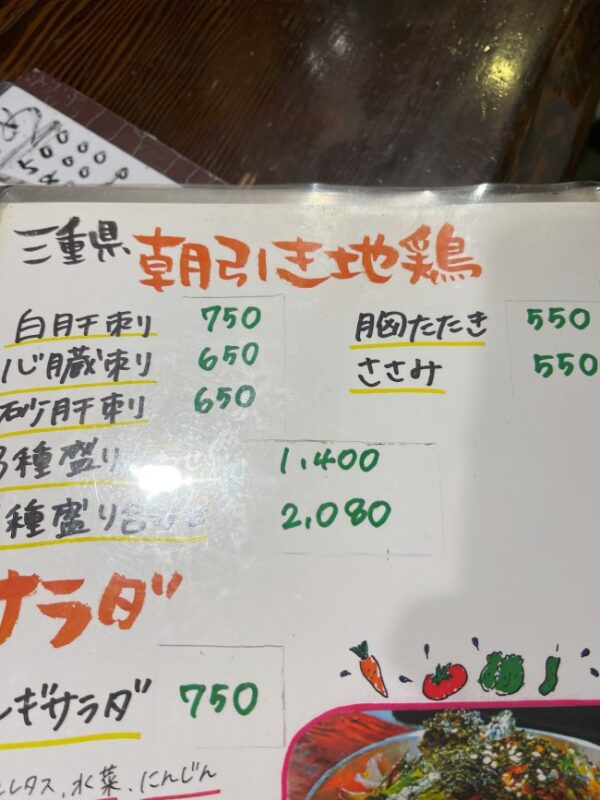 500
三重県 朝引き地鶏
白肝刺り 750
心臓刺り 650
砂肝刺り 650
種盛り 1,400
種盛り 2,080
胸たたき 550
ささみ 550
サラダ
ギサラダ 750
レタス、水菜、にんじん